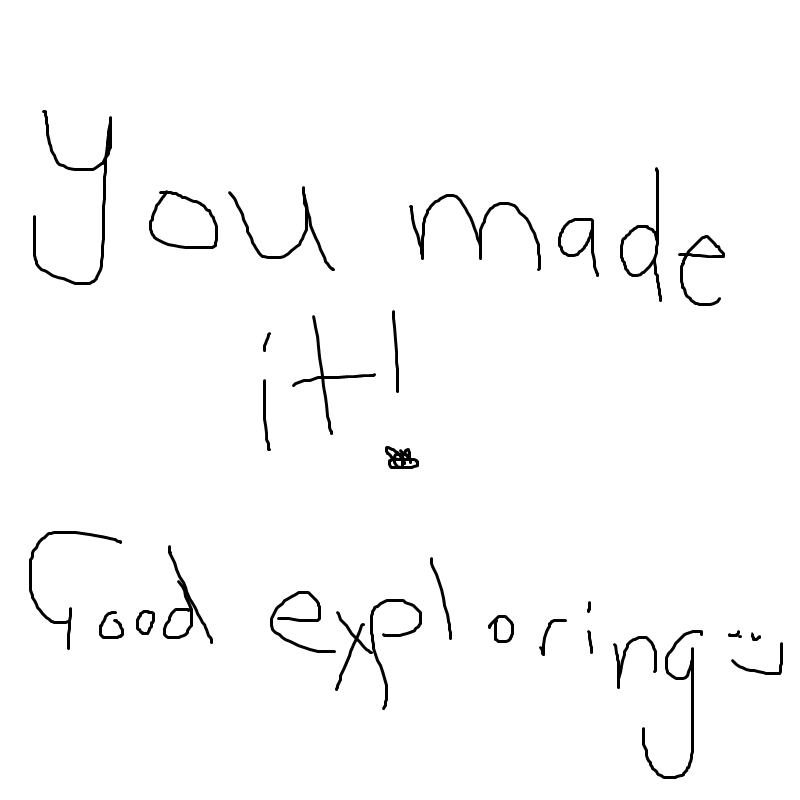 You made
it!
Good exploring :)